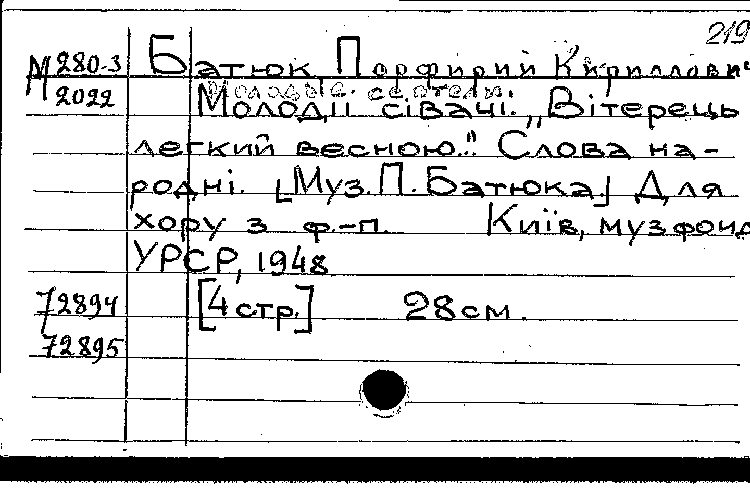 219
М 280-3
2022
Батюк, Порфирий Кириллович
Молодые сеятели.
Молодіі сівачі. „Вітерець
легкий весною..." Слова на-
родні. [Муз. П. Батюка.] Для
хору з ф.-п. Київ, музфонд
УРСР, 1948
72894
72895
[4 стр.] 28 см.